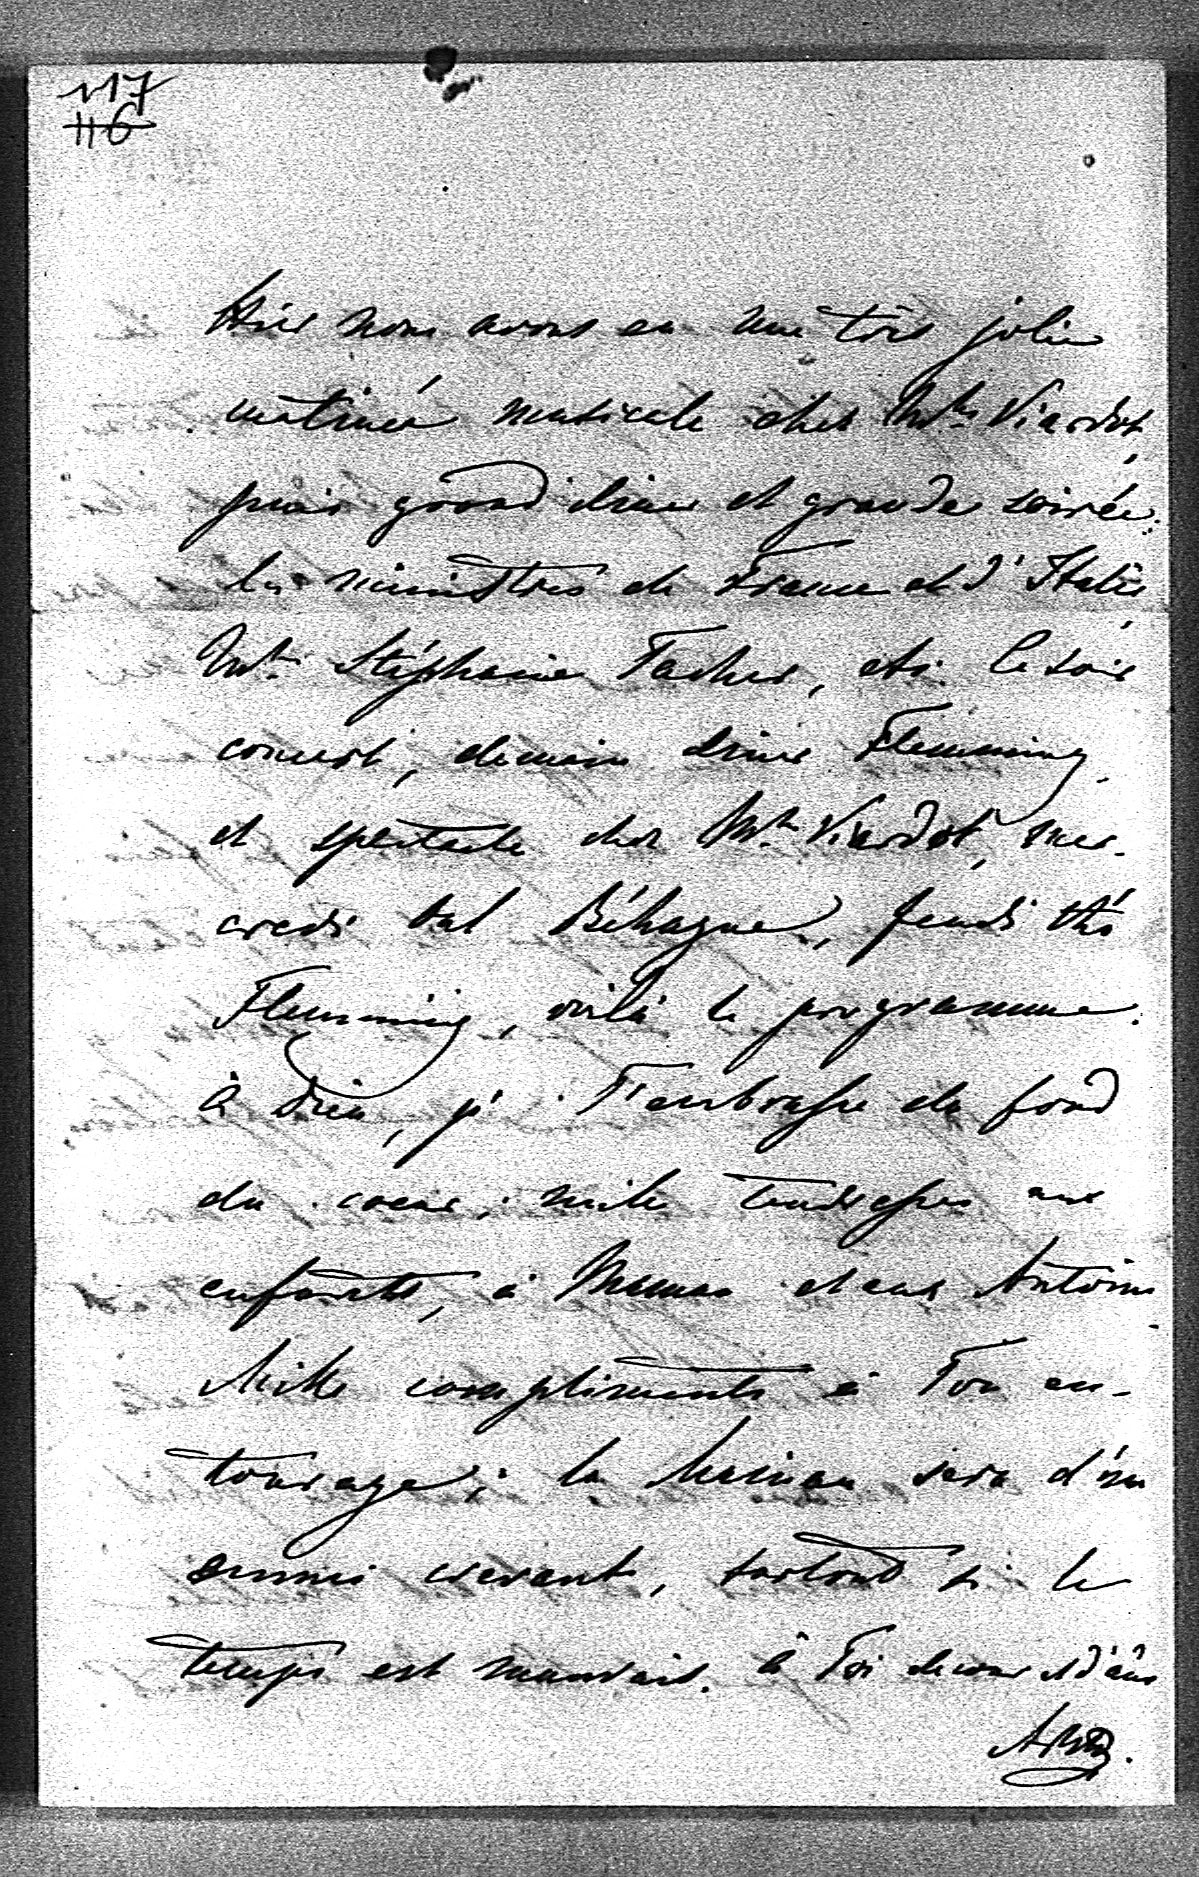 117
116
Hier nous avons eu une très jolie
matinée musicale chez Mde Viardot,
puis grand diner et grande soirée:
les ministres de France et d'Italie,
Mde Stéphanie Tascher, etc. Ce soir
concert, demain diner Flemming
et spectacle chez Mde Viardot, mer-
credi bal Béhague, jeudi thé
Flemming, voilà le programme.
à Dieu, je T'embrasse du fond
du coeur; mille tendresses aux
enfants, à Maman et aux Antoine
Mille compliments à Ton en-
tourage; la  sera d'un
ennui crevant, surtout si le
temps est mauvais. à Toi de coeur et d'âme